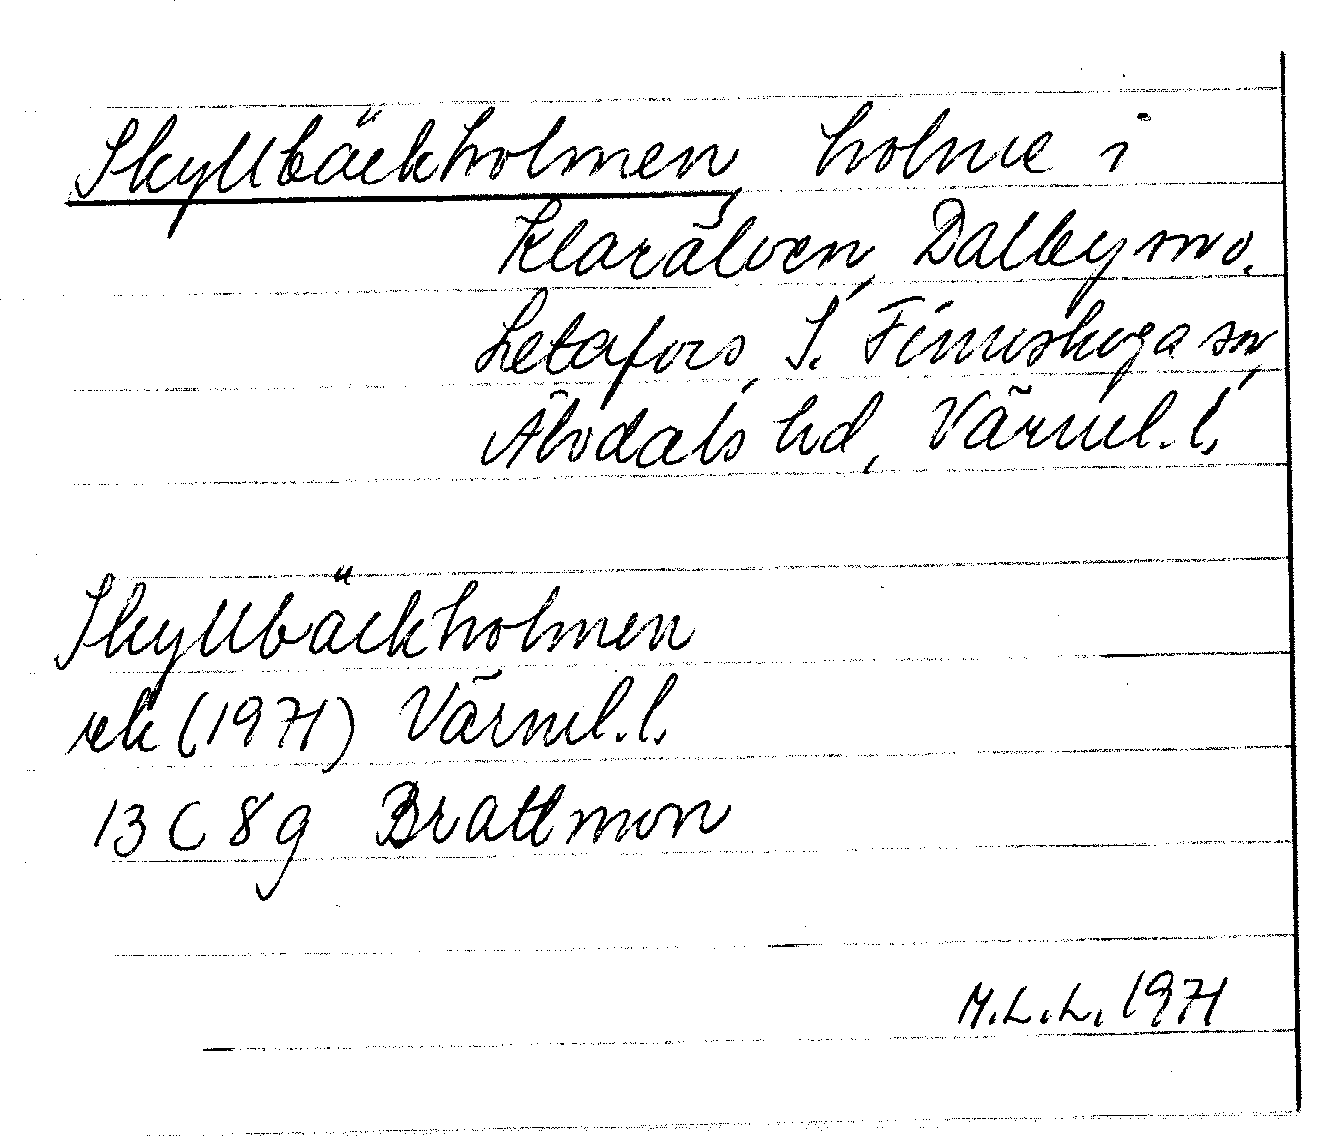 Skyllbäckholmen, holme i
Klarälven, Dalby sn o.
Letafors, S. Finnskoga sn,
Älvdals hd, Värml. l.
Skyllbäckholmen
rek (1971) Värml. l.
13 C 8 g Brattmon
M.L.L. 1971